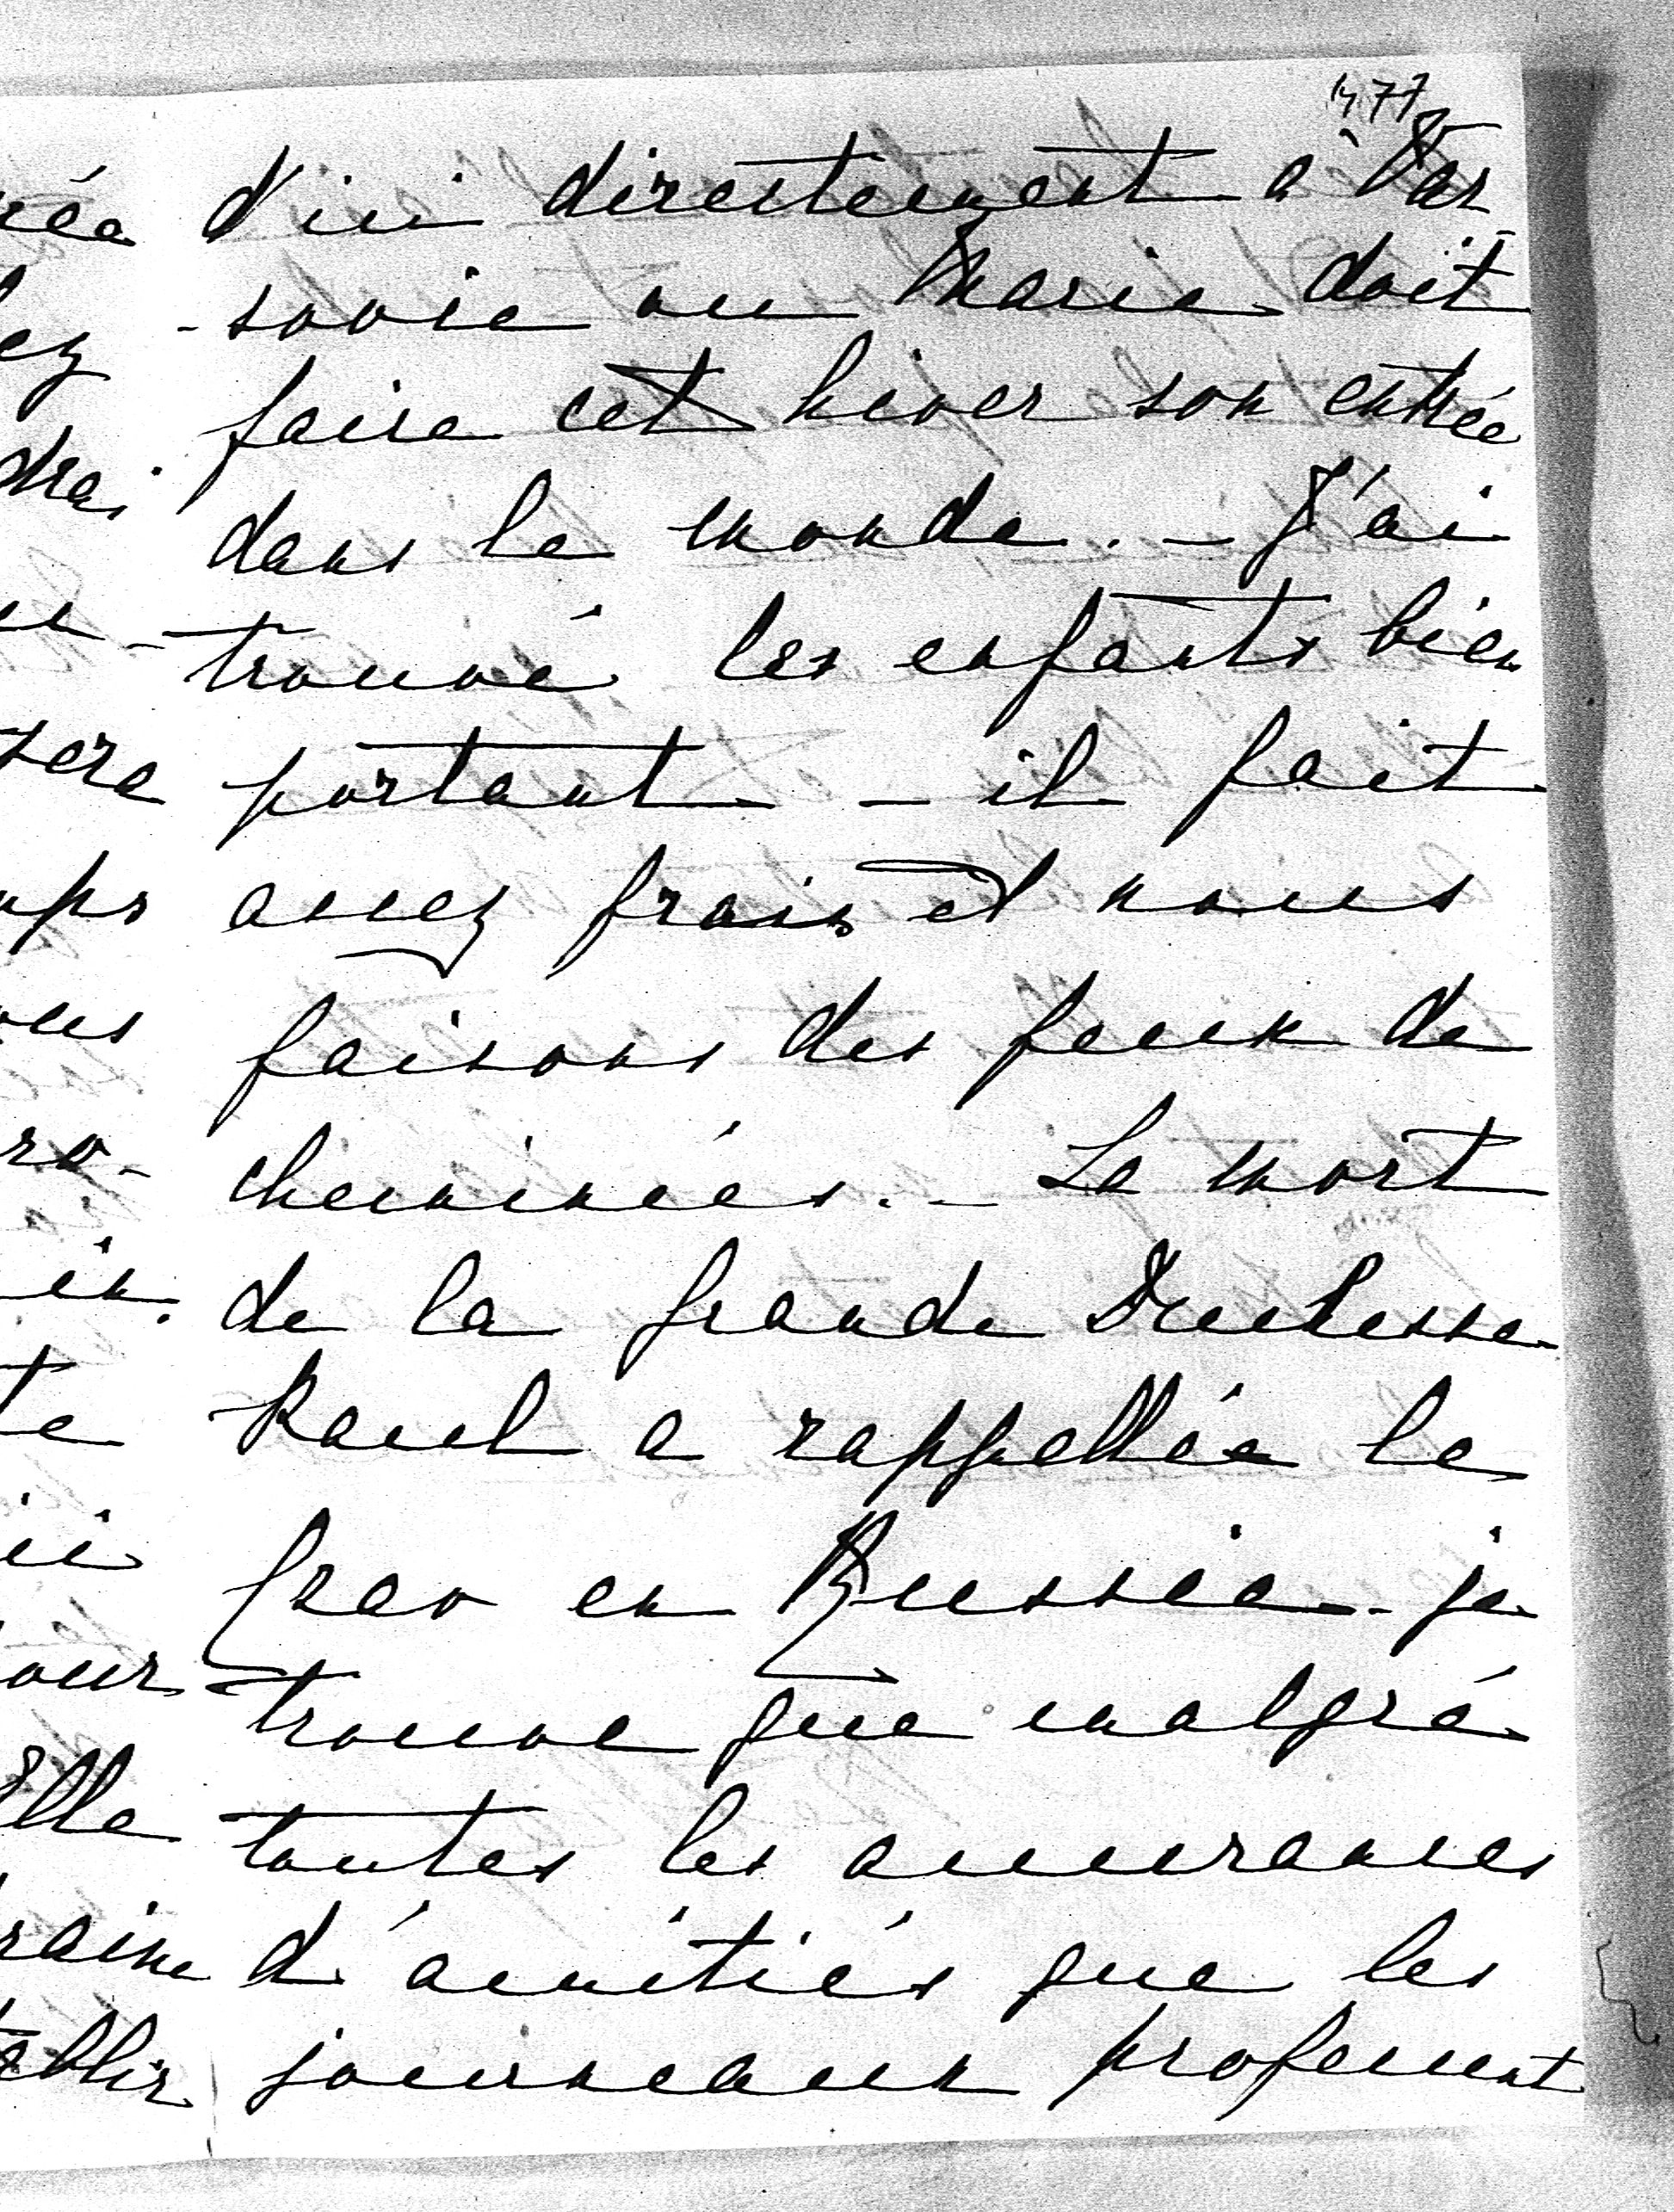 77
d'ici directement à Var-
-sovie ou Marie doit
faire cet hiver son entrée
dans le monde. - J'ai
trouvé les enfants bien
portant - il fait
assez frais et nous
faisons des feux de
cheminées. - La mort
de la grande Duchesse
Paul a rappellée le
en Russie - je
trouve que malgré
toutes les assurances
d'amitiés que les
journeaux professent